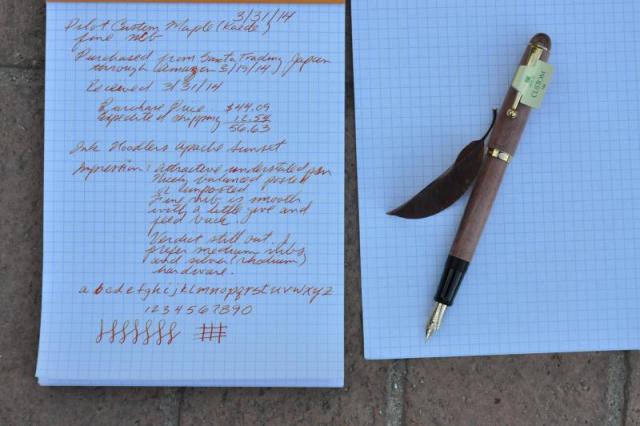 3/31/14
Pilot Custom Maple (Kaede)
fine nib
Purchased from Santa Trading Japan
through Amazon 3/19/14)
Received 3/31/14
Purchase Price $44.09
Expedited shipping 12.54
56.63
Ink Noodlers Apache Sunset
Impression: Attractive understated pen
Nicely balanced posted
or unposted
Fine nib is smooth
with a little give and
feed back.
Verdict still out. I
prefer medium nibs
and silver (rhodium)
hardware.
a bcdefghijklmnopqrstuvwxyz
1234567890
CUSTOM